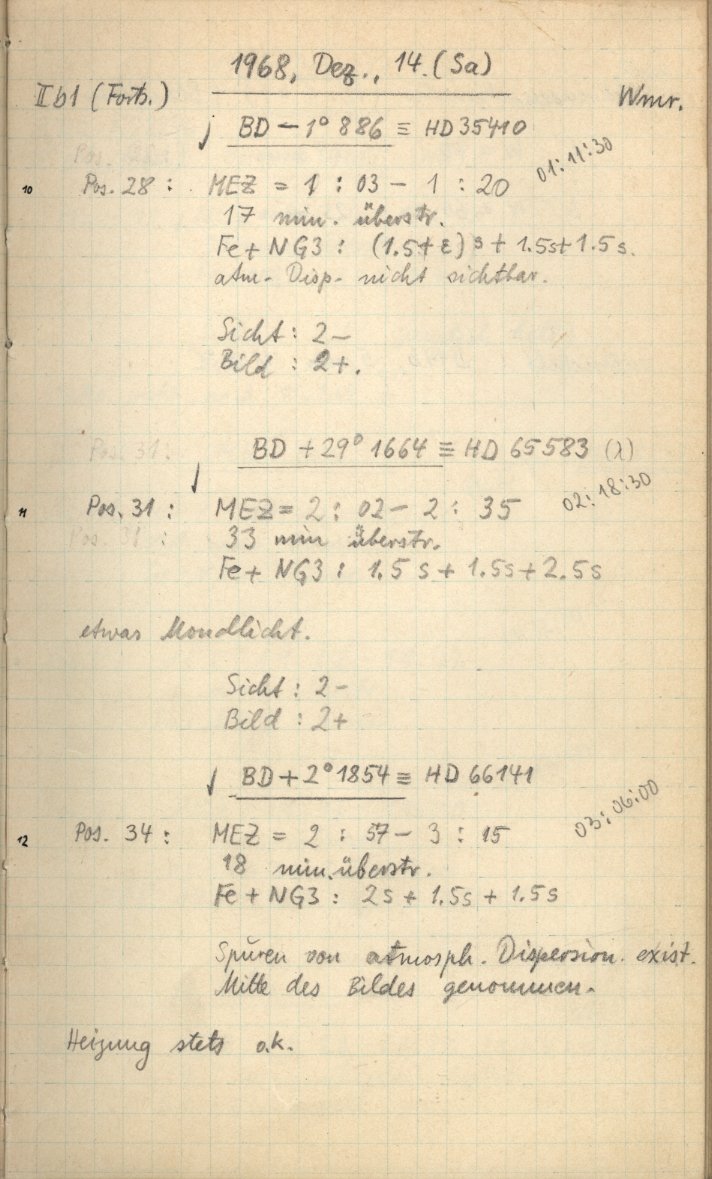 1968, Dez., 14. (Sa)
II b1 (Forts.) Wmr.
BD – 1° 886 ≡ HD 35410
01:11:30
10 Pos. 28 : MEZ = 1 : 03 – 1 : 20
17 min. überstr.
Fe + NG3 : (1.5 + ε) s + 1.5s + 1.5 s.
atm. Disp. nicht sichtbar.
Sicht : 2 –
Bild : 2+.
BD + 29° 1664 ≡ HD 65583 (λ)
02:18:30
11 Pos. 31 : MEZ = 2 : 02 – 2 : 35
33 min überstr.
Fe + NG3 : 1.5 s + 1.5s + 2.5s
etwas Mondlicht.
Sicht : 2 –
Bild : 2+
BD + 2° 1854 ≡ HD 66141
03:06:00
12 Pos. 34 : MEZ = 2 : 57 – 3 : 15
18 min. überstr.
Fe + NG3 : 2s + 1.5s + 1.5s
Spuren von atmosph. Dispersion. exist.
Mitte des Bildes genommen.
Heizung stets o.k.